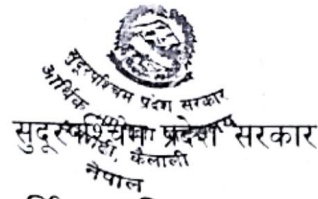 सुदूरपश्चिम प्रदेश सरकार
आर्थिक
सुदूरपश्चिम प्रदेश सरकार
कैलाली
नेपाल